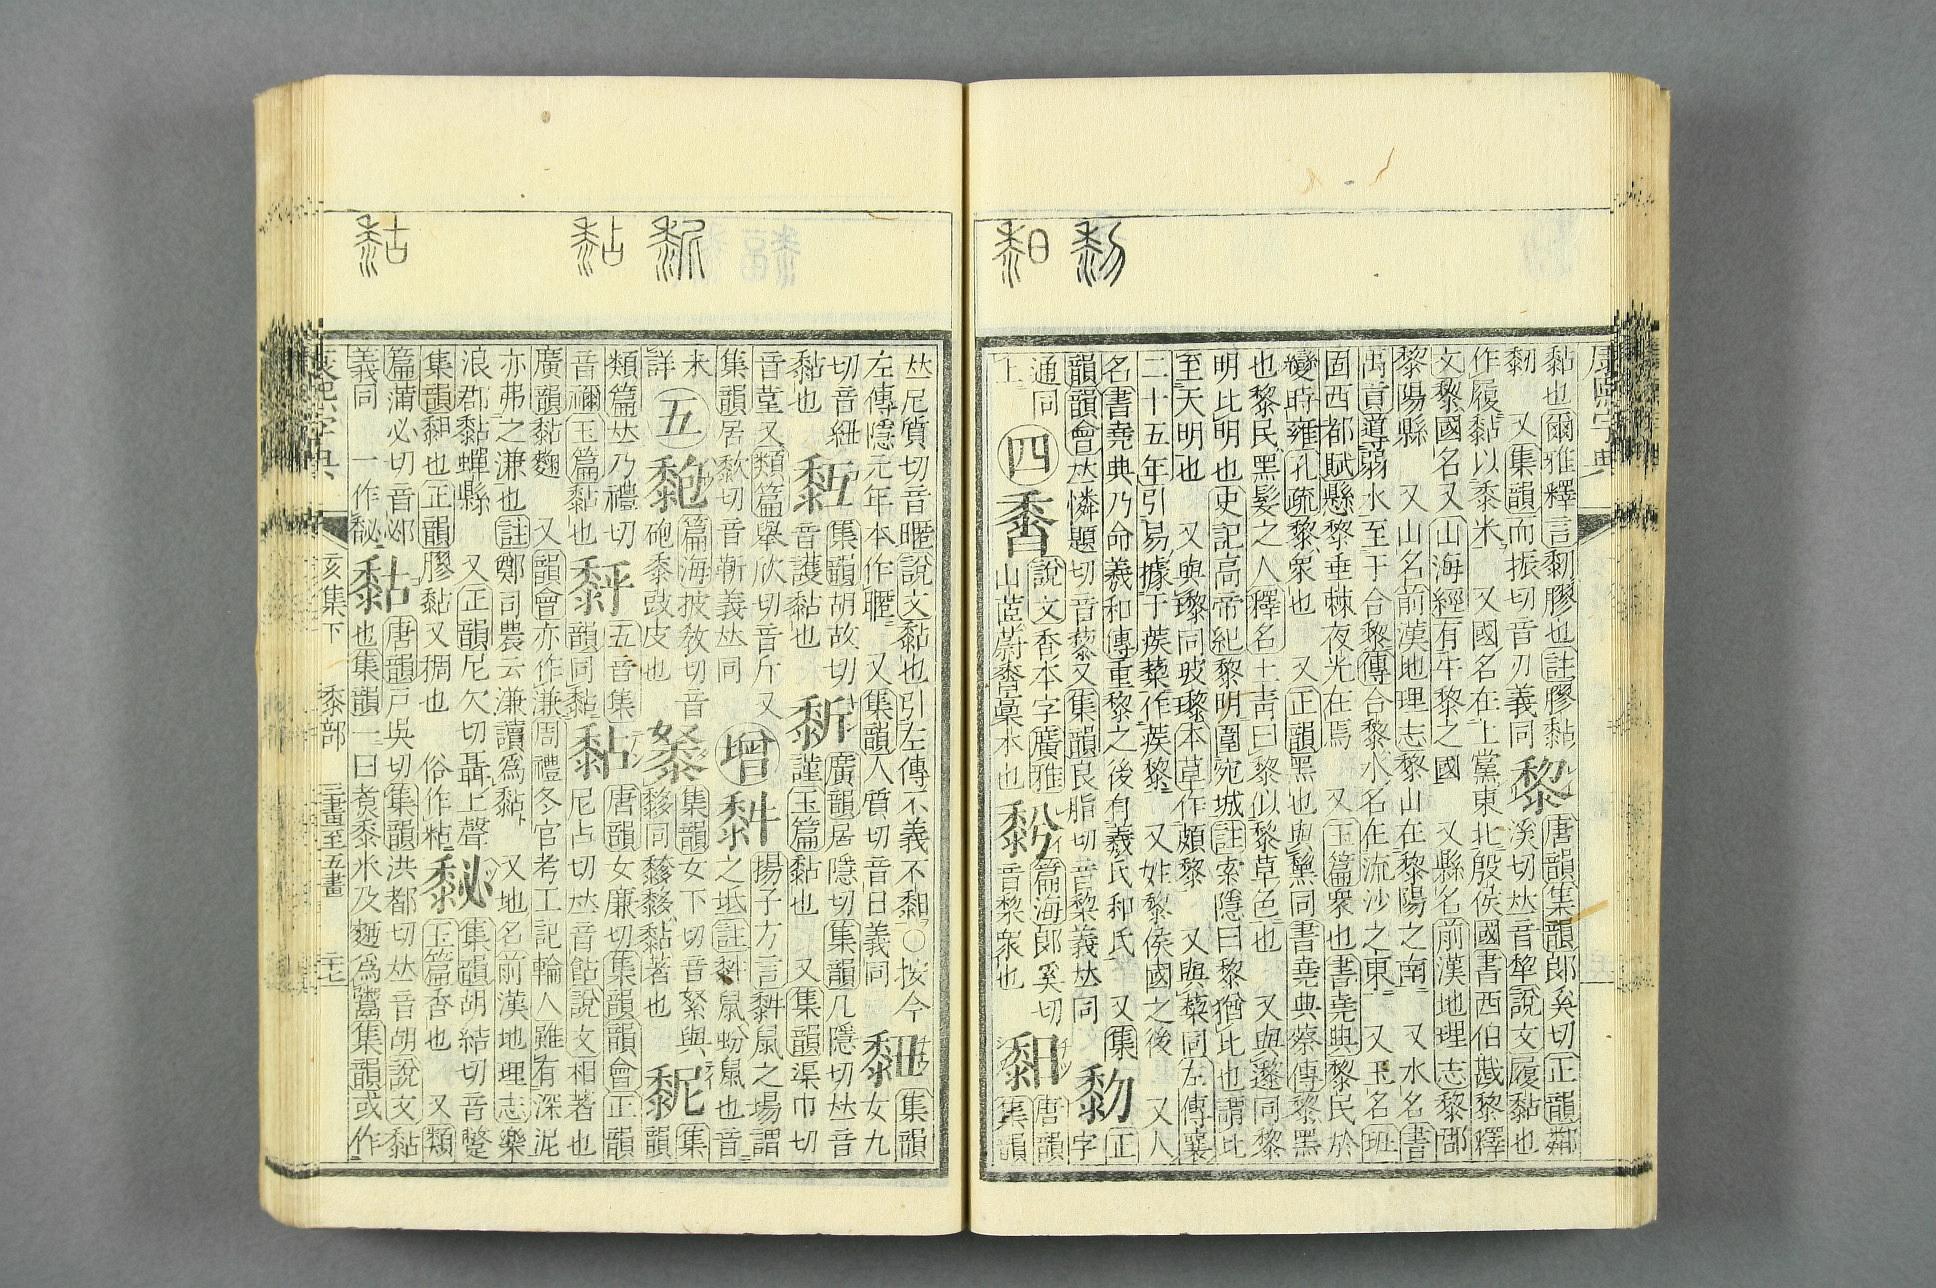 康熙字典
黏也爾雅釋言䵑膠也註膠黏
䵑 又集韻而振切音刃義同
黎
唐韻集韻郞奚切正韻鄰
溪切𠀤音犂說文履黏也
作履黏以黍米 又國名在上黨東北殷侯國書西伯戡黎釋
文黎國名又山海經有牛黎之國 又縣名前漢地理志黎鄕
黎陽縣 又山名前漢地理志黎山在黎陽之南 又水名書
禹貢道弱水至于合黎傳合黎水名在流沙之東 又玉名班
固西都賦懸黎垂棘夜光在焉 又玉篇衆也書堯典黎民於
變時雍孔疏黎衆也 又正韻黑也與黧同書堯典蔡傳黎黑
也黎民黑髮之人釋名土靑曰黎似黎草色也 又與邌同黎
明比明也史記高帝紀黎明圍宛城註索隱曰黎猶比也謂比
至天明也 又與瓈同玻瓈本草作頗黎 又與藜同左傳襄
二十五年引易據于蒺藜作蒺黎 又姓黎侯國之後 又人
名書堯典乃命羲和傳重黎之後有羲氏和氏 又集
韻韻會𠀤憐題切音黎又集韻良脂切音棃義𠀤同
䵒
正
字
通同
上
四
黁
說文香本字廣雅
山茝蔚黁藁本也
黺
篇海郞奚切
音黎衆也
䵒
唐韻
集韻
𠀤尼質切音暱說文黏也引左傳不義不䵒○按今
左傳隱元年本作暱 又集韻人質切音日義同
䵓
集韻
女九
切音紐
黏也
䵔
集韻胡故切
音護黏也
䵖
廣韻居隱切集韻几隱切𠀤音
謹玉篇黏也 又集韻渠巾切
音堇又類篇舉欣切音斤又
集韻居焮切音靳義𠀤同
增
䵕
揚子方言䵕鼠之場謂
之坻註䵕鼠蚡鼠也音
未
詳
五
䵘
篇海披敎切音
砲黍豉皮也
䵙
集韻女下切音絮與
䵙同䵙䵙黏著也
䵑
集
韻
類篇𠀤乃禮切
音禰玉篇黏也
䵗
五音集
韻同黏
黏
唐韻女廉切集韻韻會正韻
尼占切𠀤音鮎說文相著也
廣韻黏麴 又韻會亦作溓周禮冬官考工記輪人雖有深泥
亦弗之溓也註鄭司農云溓讀爲黏 又地名前漢地理志樂
浪郡黏蟬縣 又正韻尼欠切聶上聲
集韻䵒也正韻膠黏又稠也 俗作粘
䵜
集韻胡結切音蹩
玉篇香也 又類
篇蒲必切音邲
義同 一作馝
黏
唐韻戸吳切集韻洪都切𠀤音胡說文黏
也集韻一曰煑黍米及麪爲鬻集韻或作
康熙字典
亥集下
黍部
三畫至五畫
二十七